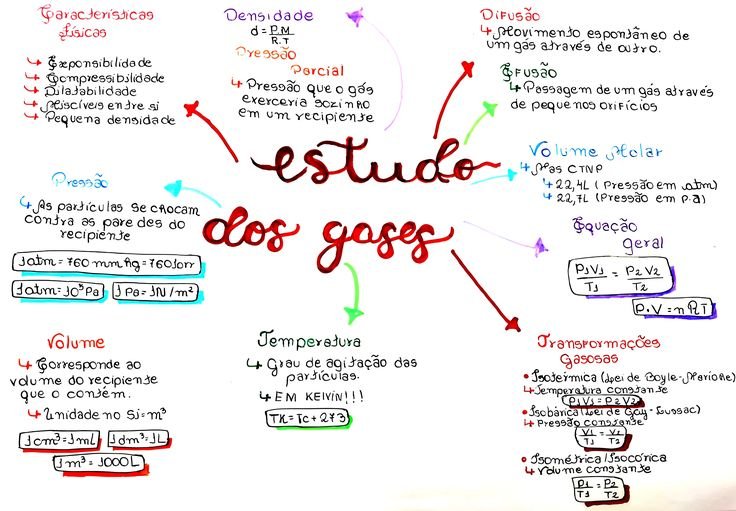 Características
Físicas
Expansibilidade
Compressibilidade
Dilatabilidade
Miscíveis entre si
Pequena densidade
Densidade
d = P.M
R.T
Pressão
Parcial
Pressão que o gás
exerceria sozinho
em um recipiente
Difusão
Movimento espontâneo de
um gás através de outro.
Efusão
Passagem de um gás através
de pequenos orifícios
Volume Molar
Nas CTNP
22,4L (Pressão em atm)
22,7L (Pressão em P.a)
estudo
dos gases
Pressão
As partículas se chocam
contra as paredes do
recipiente
1atm = 760 mmHg = 760Torr
1atm = 10⁵Pa
1Pa = 1N/m²
Equação
geral
P1V1 = P2V2
T1 T2
P.V = nRT
Volume
Corresponde ao
volume do recipiente
que o contém.
Unidade no Si = m³
1cm³ = 1mL
1dm³ = 1L
1m³ = 1000L
Temperatura
Grau de agitação das
partículas.
EM KElVIN!!!
TK = Tc + 273
Transformações
Gasosas
• Isotérmica (Lei de Boyle-Mariotte)
Temperatura constante
P1V1 = P2V2
• Isobárica (Lei de Gay-Lussac)
Pressão constante
V1 = V2
T1 T2
• Isométrica/Isocórica
Volume constante
P1 = P2
T1 T2